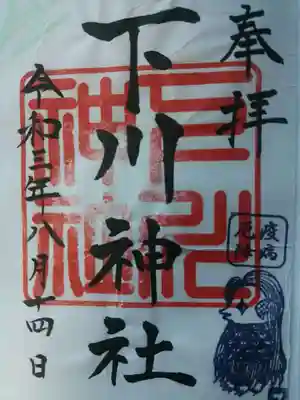 奉拝
下川神社
令和三年八月十四日
下川
神社
疫病